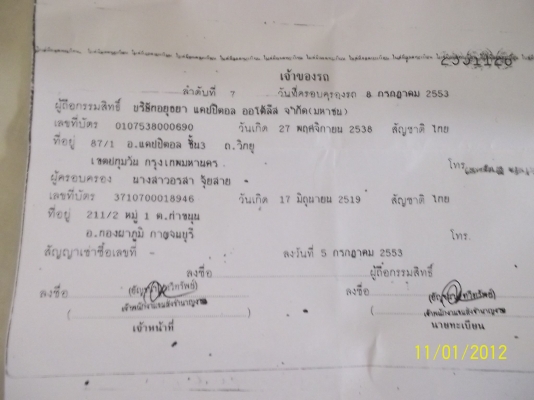 2531126
เจ้าของรถ
ลำดับที่ 7 วันที่ครอบครองรถ 8 กรกฎาคม 2553
ผู้ถือกรรมสิทธิ์ บริษัทอยุธยา แคปปิตอล ออโต้ลีส จำกัด(มหาชน)
เลขที่บัตร 0107538000690 วันเกิด 27 พฤศจิกายน 2538 สัญชาติ ไทย
ที่อยู่ 87/1 อ.แคปปิตอล ชั้น3 ถ.วิทยุ
เขตปทุมวัน กรุงเทพมหานคร โทร.
ผู้ครอบครอง นางสาวอรสา จุ้ยสาย
เลขที่บัตร 3710700018946 วันเกิด 17 มิถุนายน 2519 สัญชาติ ไทย
ที่อยู่ 211/2 หมู่ 1 ต.ท่าขนุน
อ.ทองผาภูมิ กาญจนบุรี โทร.
สัญญาเช่าซื้อเลขที่ - ลงวันที่ 5 กรกฎาคม 2553
ลงชื่อ ผู้ถือกรรมสิทธิ์
ลงชื่อ ลงชื่อ
เจ้าพนักงานขนส่งชำนาญงาน เจ้าพนักงานขนส่งชำนาญงาน
เจ้าหน้าที่ นายทะเบียน
11/01/2012